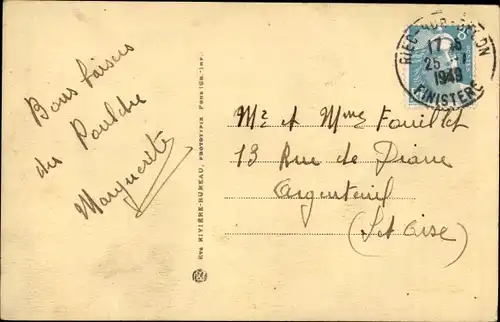 Bons baisers
du Pouldu
Marguerite
Ets RIVIÈRE-BUREAU, PROTOTYPIE
RIEC-SUR-BELON
17
25
1949
FINISTERE
Mr et Mme Fouillet
13 Rue de Diane
Argenteuil
(S et Oise)